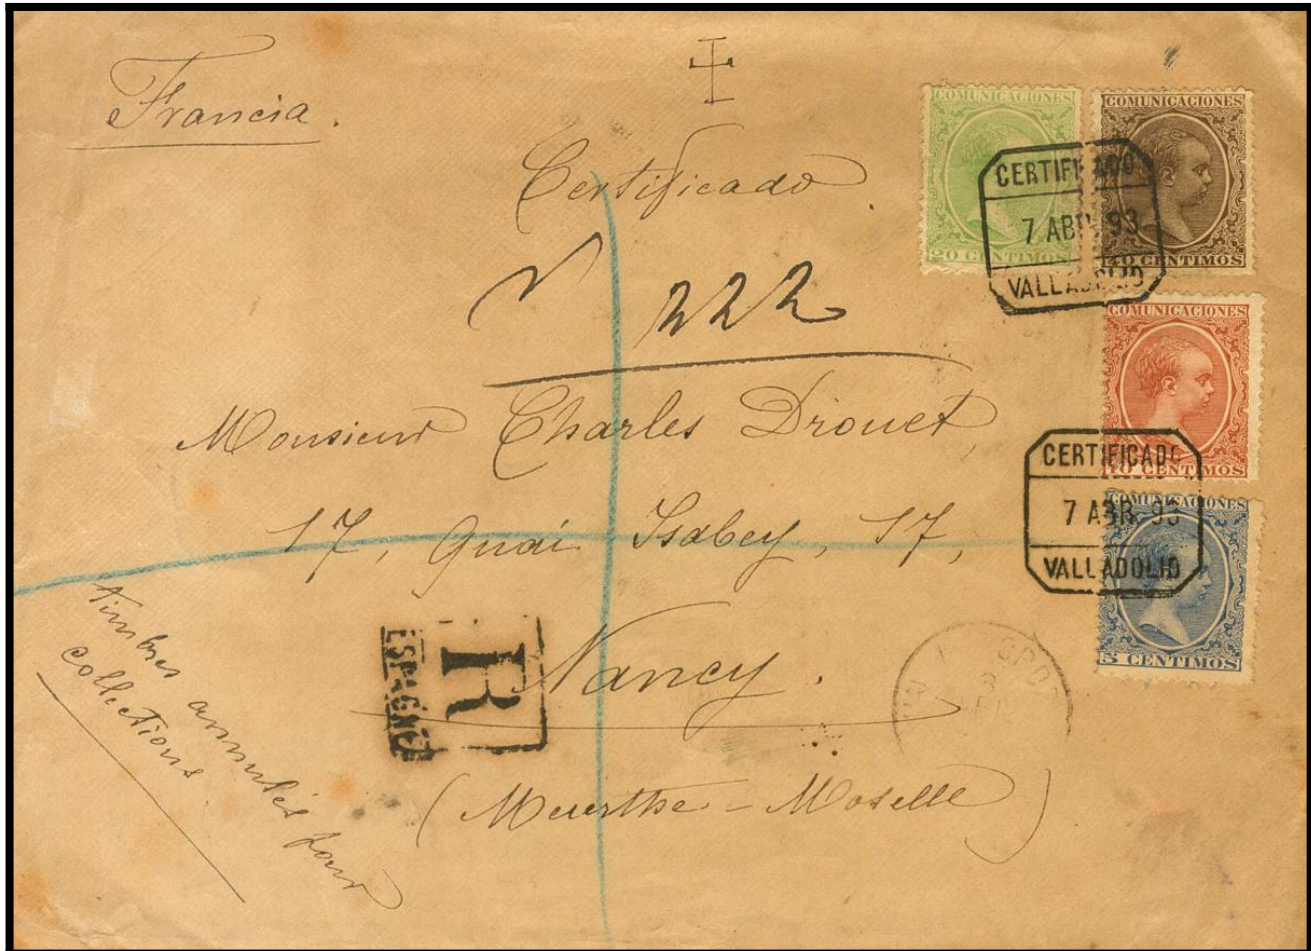 Francia.
Certificado
222
Monsieur Charles Drouet
17, Quai Isabey, 17,
Nancy.
(Meurthe-Moselle)
timbres annulés pour
collections
R
ESPAGNE
COMUNICACIONES
20 CENTIMOS
COMUNICACIONES
40 CENTIMOS
CERTIFICADO
7 ABR. 93
VALLADOLID
COMUNICACIONES
10 CENTIMOS
CERTIFICADO
7 ABR. 93
VALLADOLID
COMUNICACIONES
5 CENTIMOS